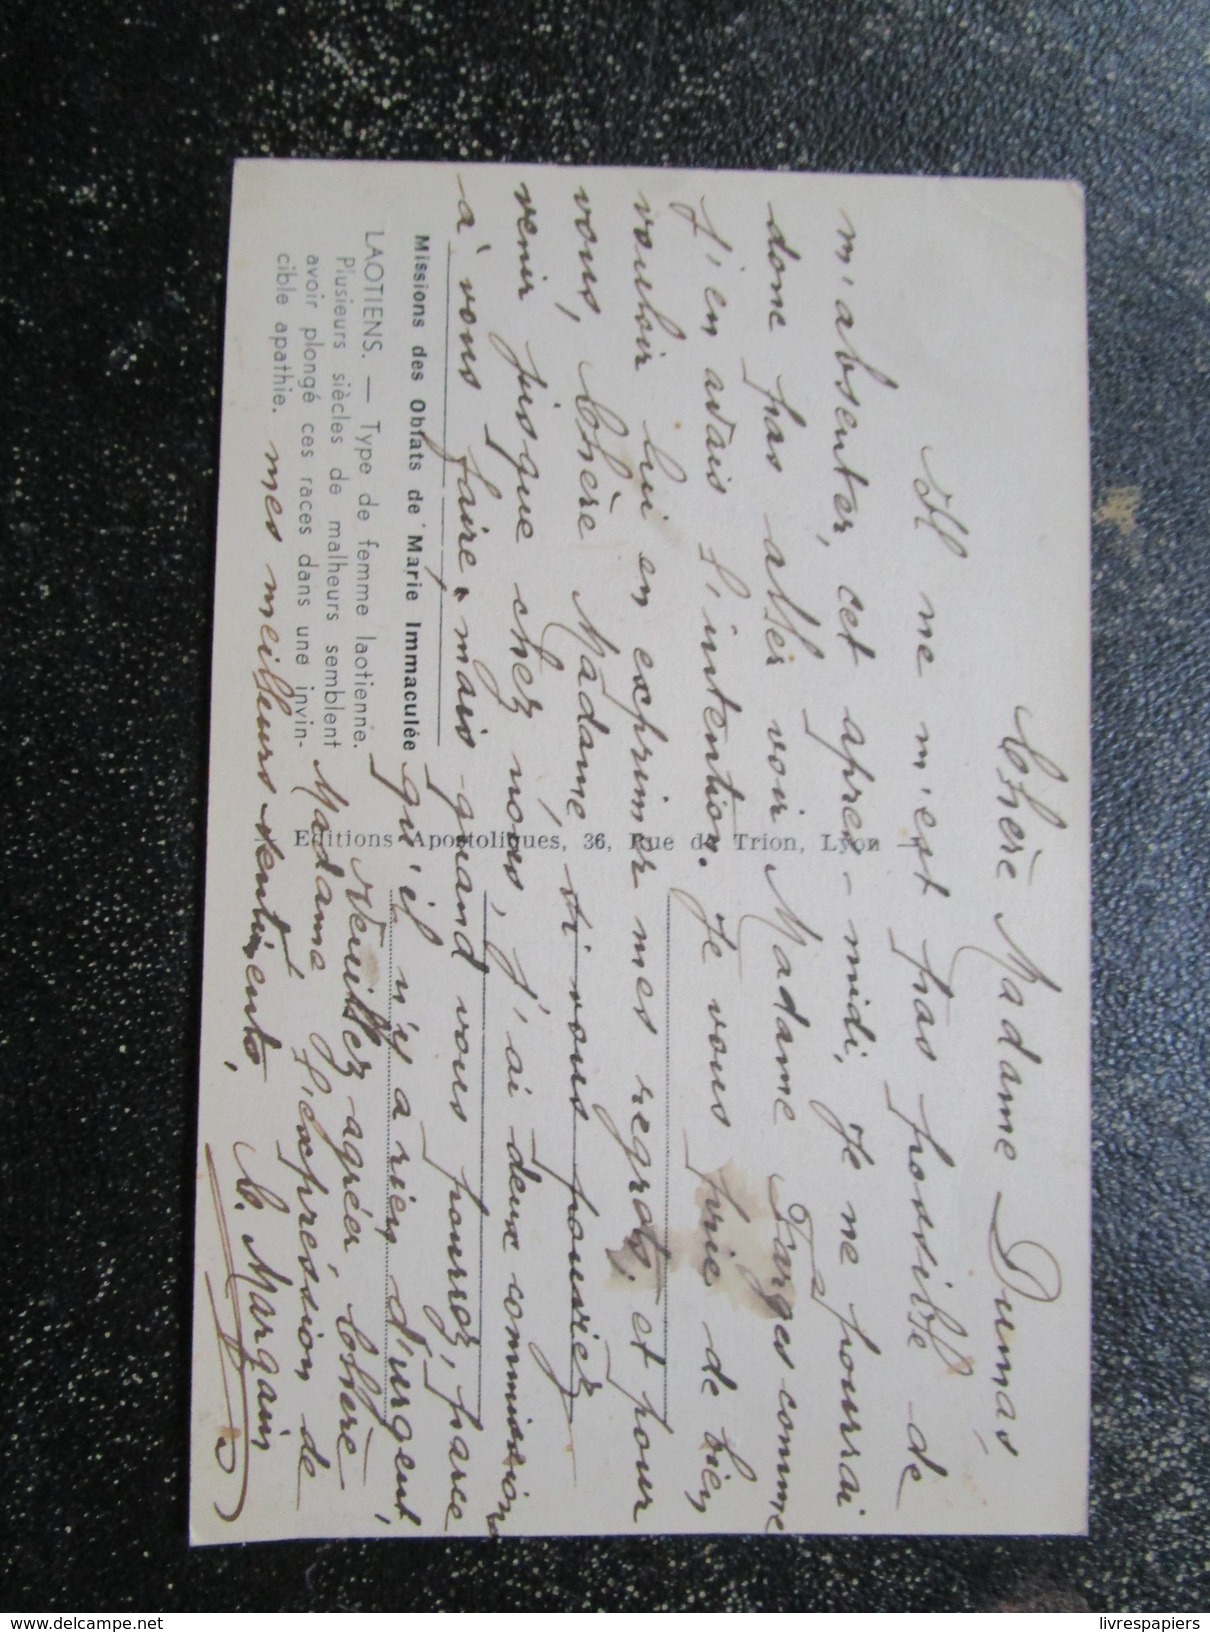 Chère Madame Dumas
Il ne m'est pas possible de
m'absenter, cet après-midi, je ne pourrai
donc pas aller voir Madame Farges comme
j'en avais l'intention. Je vous prie de bien
vouloir lui en exprimer mes regrets, et pour
vous, Chère Madame, si vous pouviez
venir jusque chez nous, j'ai deux commissions
à vous faire, mais quand vous pourrez, parce
qu'il n'y a rien d'urgent,
Veuillez agréer, Chère
Madame l'expression de
mes meilleurs sentiments,
C. Margain
Missions des Oblats de Marie Immaculée
LAOTIENS. — Type de femme laotienne.
Plusieurs siècles de malheurs semblent
avoir plongé ces races dans une invin-
cible apathie.
Editions Apostoliques, 36, Rue de Trion, Lyon
delcampe.net
livrespapiers